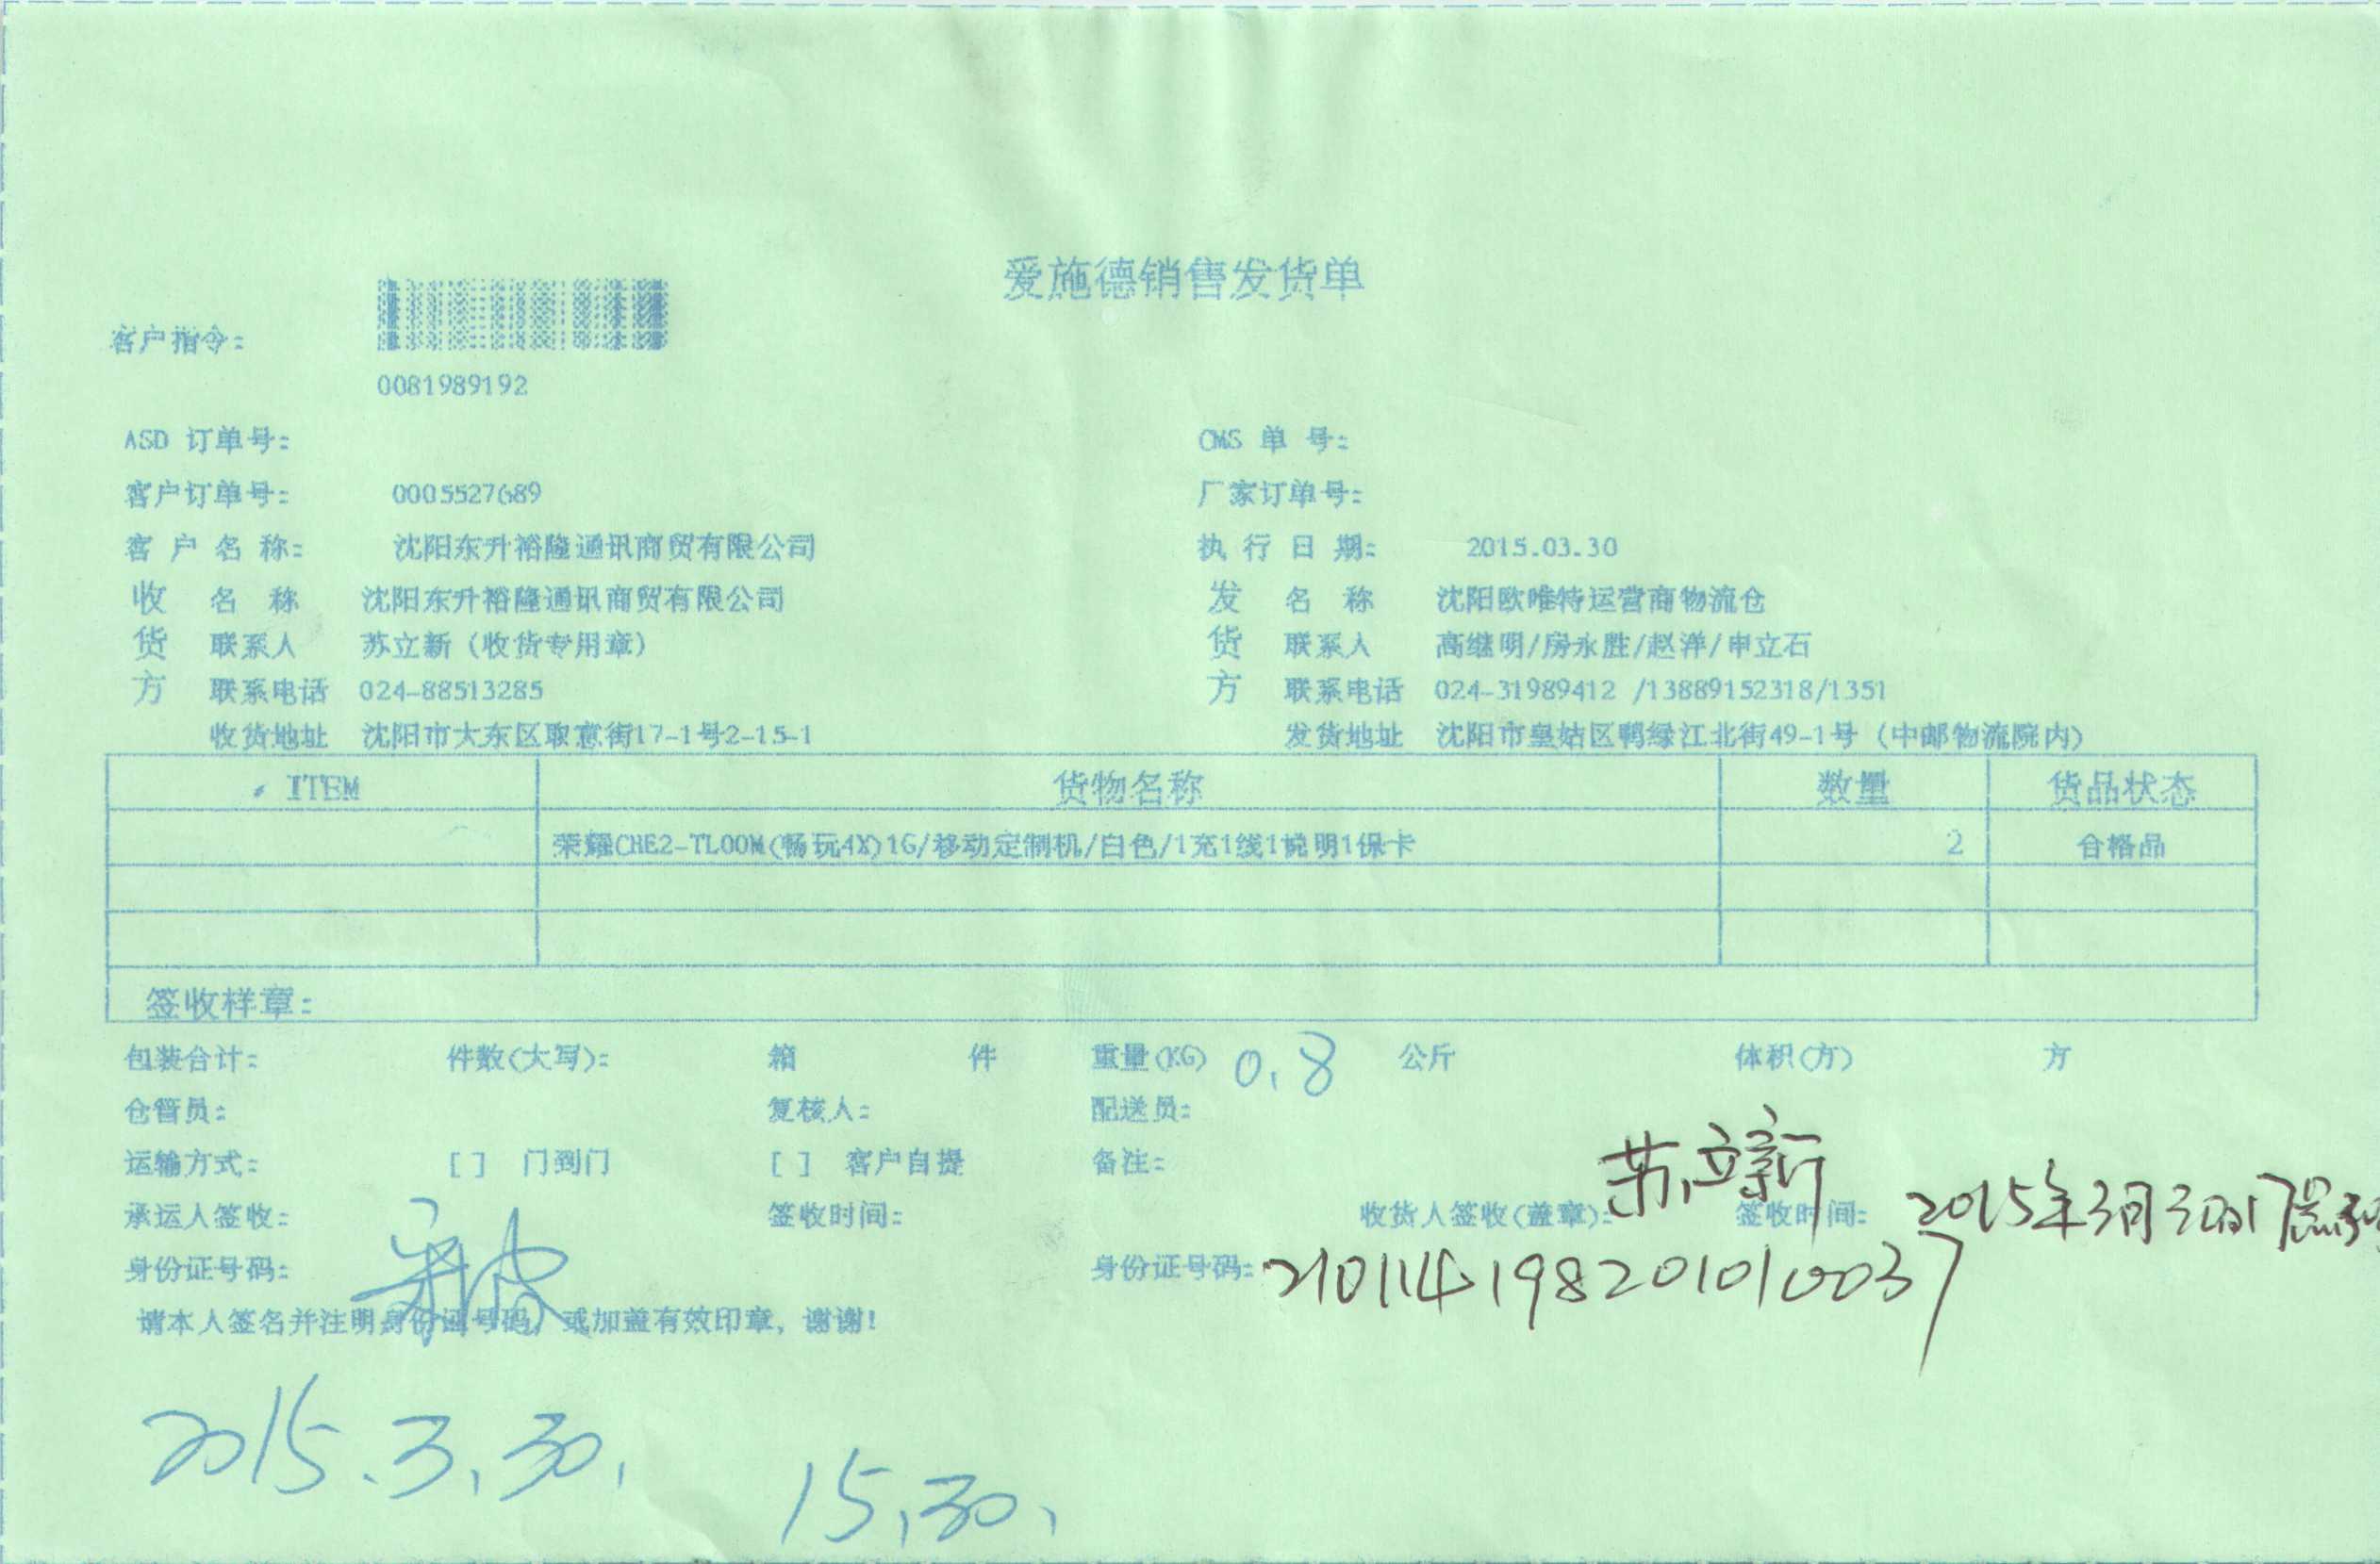 爱施德销售发货单
客户指令:
0081989192
ASD 订单号: CMS 单 号:
客户订单号: 0005527689 厂家订单号:
客 户 名 称: 沈阳东升裕隆通讯商贸有限公司 执 行 日 期: 2015.03.30
收 名 称 沈阳东升裕隆通讯商贸有限公司 发 名 称 沈阳欧唯特运营商物流仓
货 联系人 苏立新（收货专用章） 货 联系人 高继明/房永胜/赵洋/申立石
方 联系电话 024-88513285 方 联系电话 024-31989412 /13889152318/1351
收货地址 沈阳市大东区取意街17-1号2-15-1 发货地址 沈阳市皇姑区鸭绿江北街49-1号（中邮物流院内）
ITEM 货物名称 数量 货品状态
荣耀CHE2-TL00M(畅玩4X)1G/移动定制机/白色/1充1线1说明1保卡 2 合格品
签收样章:
包装合计: 件数(大写): 箱 件 重量(KG) 0.8 公斤 体积(方) 方
仓管员: 复核人: 配送员:
运输方式: [ ] 门到门 [ ] 客户自提 备注:
承运人签收: 签收时间: 收货人签收(盖章): 苏立新 签收时间: 2015年3月30日17点
身份证号码: 身份证号码: 210114198201010037
请本人签名并注明身份证号码, 或加盖有效印章, 谢谢!
2015.3.30.
15.30.